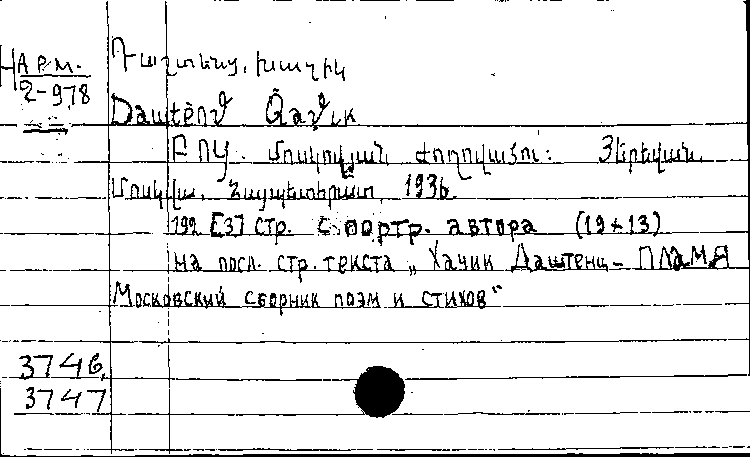 Н АРМ.
2-978
Դաշտենց, Խաչիկ
ԲՈՑ. Մոսկովյան ժողովածու: Յերեվան,
Մոսկվա, Հայպետհրատ, 1936.
192 [3] стр. с портр. автора (19×13)
на посл. стр. текста „Хачик Даштенц – Пламя
Московский сборник поэм и стихов“
3746,
3747